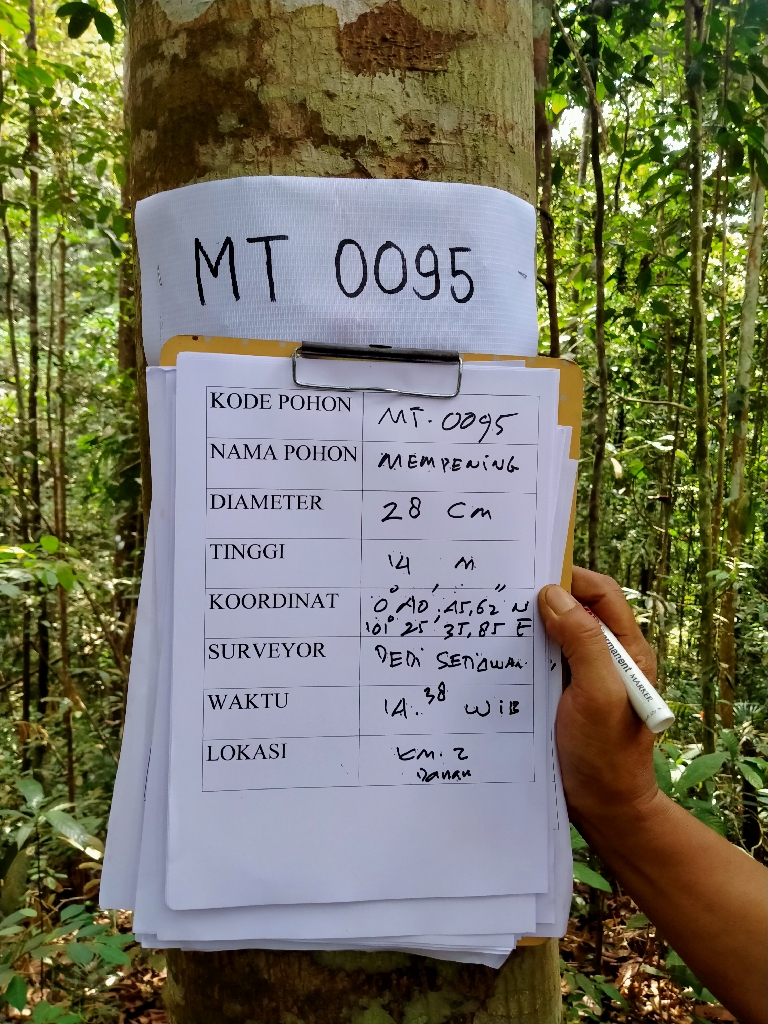 MT 0095
KODE POHON MT. 0095
NAMA POHON MEMPENING
DIAMETER 28 cm
TINGGI 14 M
KOORDINAT 0° 40' 45,62" N
101° 25' 35,85" E
SURVEYOR DEDI SETIAWAN
WAKTU 14.38 WIB
LOKASI KM. 2
Danau
Permanent MARKER